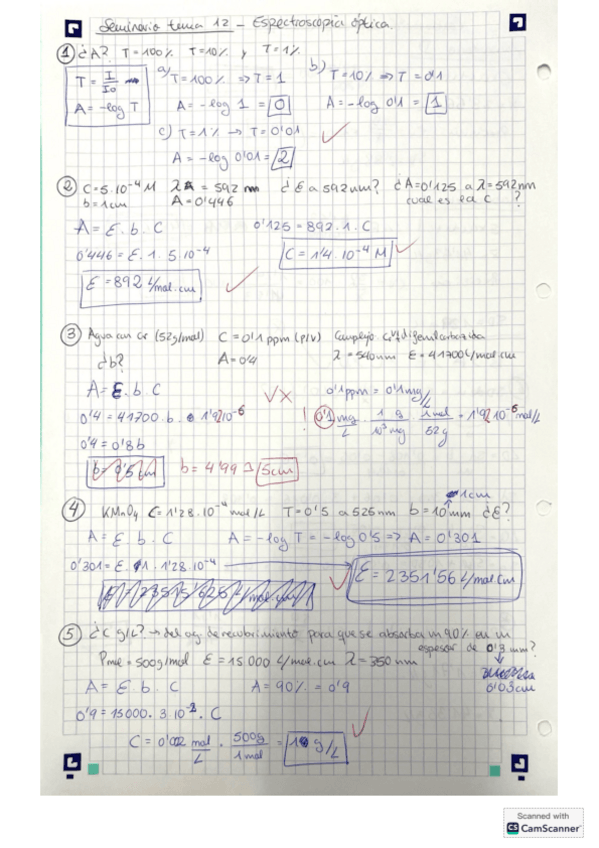 Seminario tema 12 - Espectroscopia óptica.
① ¿A? T = 100% T = 10% y T = 1%
T = I/Io
A = -log T
a) T = 100% => T = 1
A = -log 1 = 0
b) T = 10% => T = 0'1
A = -log 0'1 = 1
c) T = 1% -> T = 0'01
A = -log 0'01 = 2
② C = 5·10⁻⁴ M λ = 592 nm ¿ε a 592nm? ¿A = 0'125 a λ = 592nm
b = 1cm A = 0'446 cual es la C ?
A = ε. b. C 0'125 = 892. 1. C
0'446 = ε. 1. 5·10⁻⁴ C = 1'4·10⁻⁴ M
ε = 892 L/mol.cm
③ Agua con Cr (52g/mol) C = 0'1 ppm (P/V) Complejo
¿b? A = 0'4 λ = 540nm ε = 41700 L/mol.cm
A = ε. b. C 0'1ppm = 0'1mg/L
0'4 = 41700. b. 1'92·10⁻⁶ ! 0'1 mg/L · 1 g/10³ mg · 1 mol/52g = 1'92·10⁻⁶ mol/L
0'4 = 0'8b
b = 0'5 cm b = 4'99 ⇒ 5cm
④ KMnO₄ C = 1'28·10⁻⁴ mol/L T = 0'5 a 525nm b = 10mm 1cm ¿ε?
A = ε b. C A = -log T = -log 0'5 => A = 0'301
0'301 = ε. 1. 1'28·10⁻⁴ ε = 2351'56 L/mol.cm
⑤ ¿C g/L? → del ag. de recubrimiento para que se absorba un 90% en un
espesor de 0'3 mm?
Pmol = 500g/mol ε = 15000 L/mol.cm λ = 350nm
0'03cm
A = ε. b. C A = 90% = 0'9
0'9 = 15000. 3·10⁻². C
C = 0'002 mol/L · 500g/1 mol = 1 g/L
Scanned with
CS CamScanner